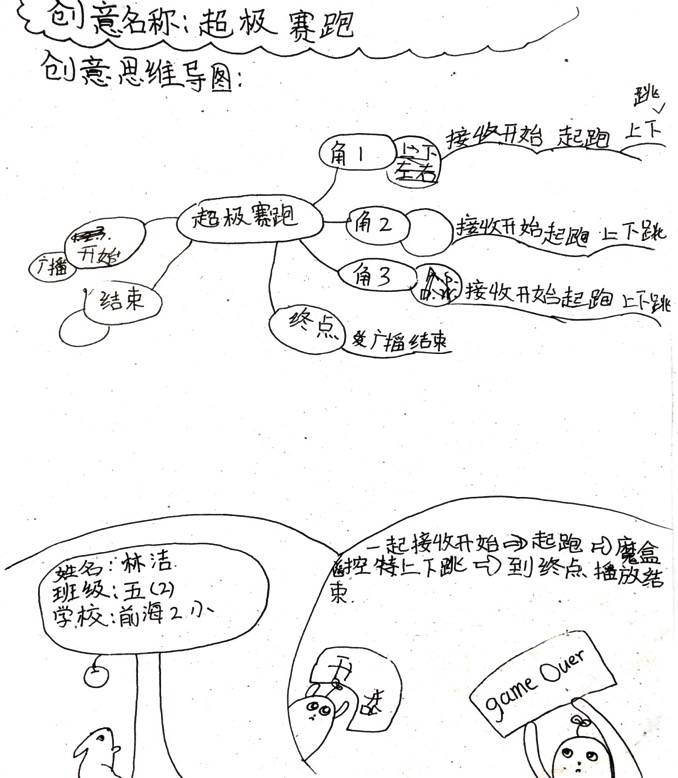 创意名称:超极赛跑
创意思维导图:
跳
角1
上下
左右
接收开始 起跑 上下
超极赛跑
角2
接收开始起跑 上下跳
开始
广播
角3
接收开始起跑 上下跳
结束
终点
广播结束
姓名:林洁
班级:五(2)
学校:前海2小
一起接收开始⇒起跑⇒魔盒
控 上下跳⇒到终点播放结
束
开
game Over